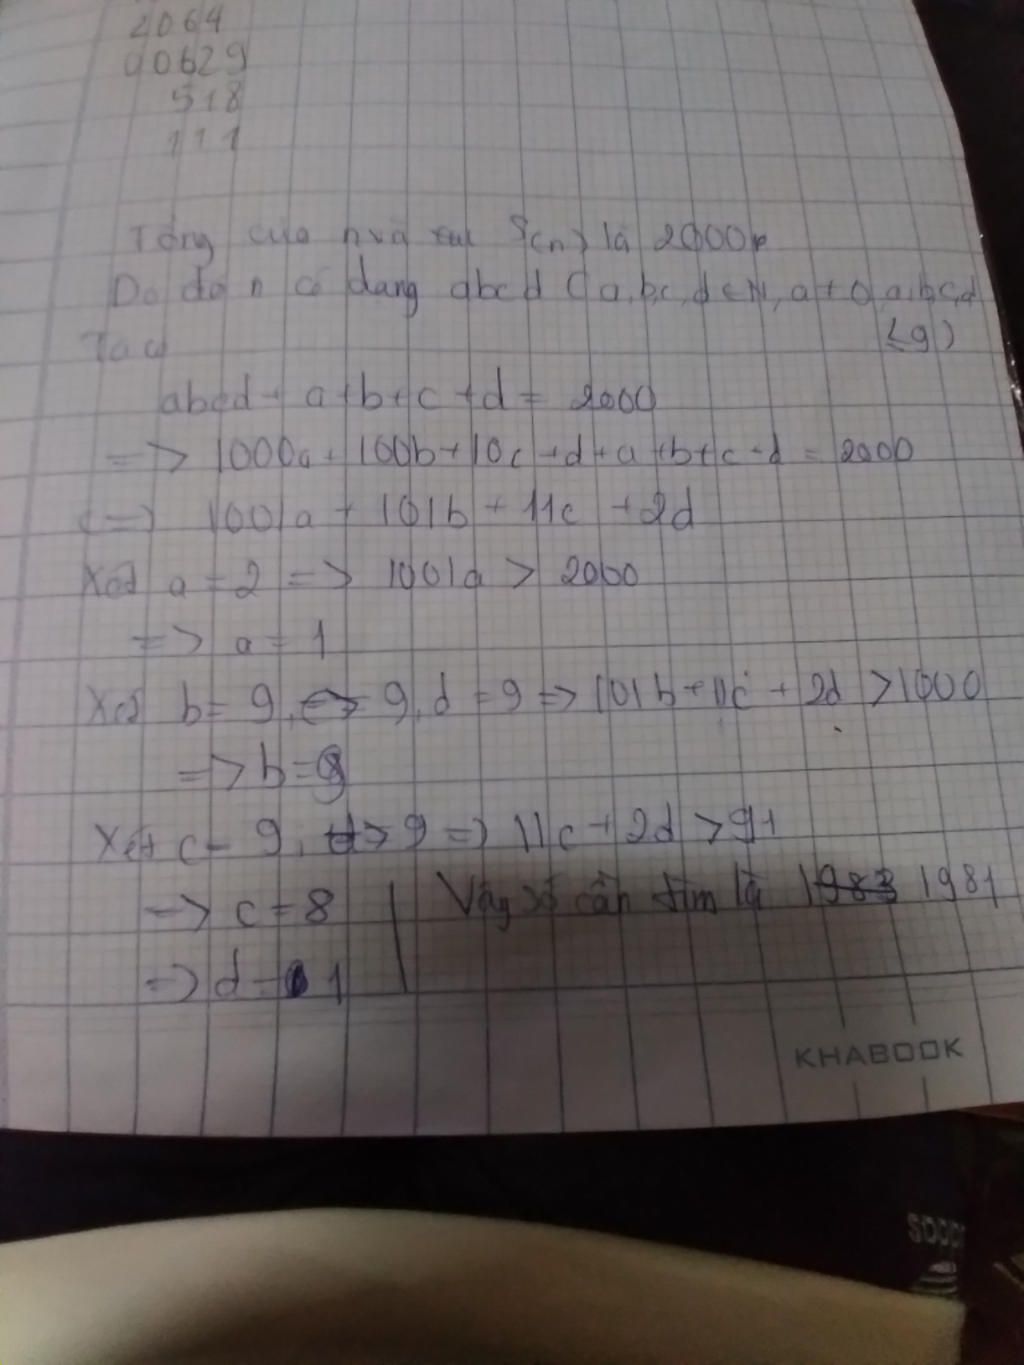 2064
00629
518
111
Tổng của n và S(n) là 2000
Do đó n có dạng abcd (a,b,c,d ∈ N, a ≠ 0, a,b,c,d
≤ 9)
Ta có
abcd + a+b+c+d = 2000
=> 1000a + 100b+10c+d+a+b+c+d = 2000
<=> 1001a + 101b + 11c + 2d
Xét a = 2 => 1001a > 2000
=> a = 1
Xét b = 9, c = 9, d = 9 => 101b + 11c + 2d > 1000
=> b = 9
Xét c = 9, d > 9 => 11c + 2d > 91
=> c = 8 Vậy số cần tìm là 1983 1981
=> d = 1
KHABOOK